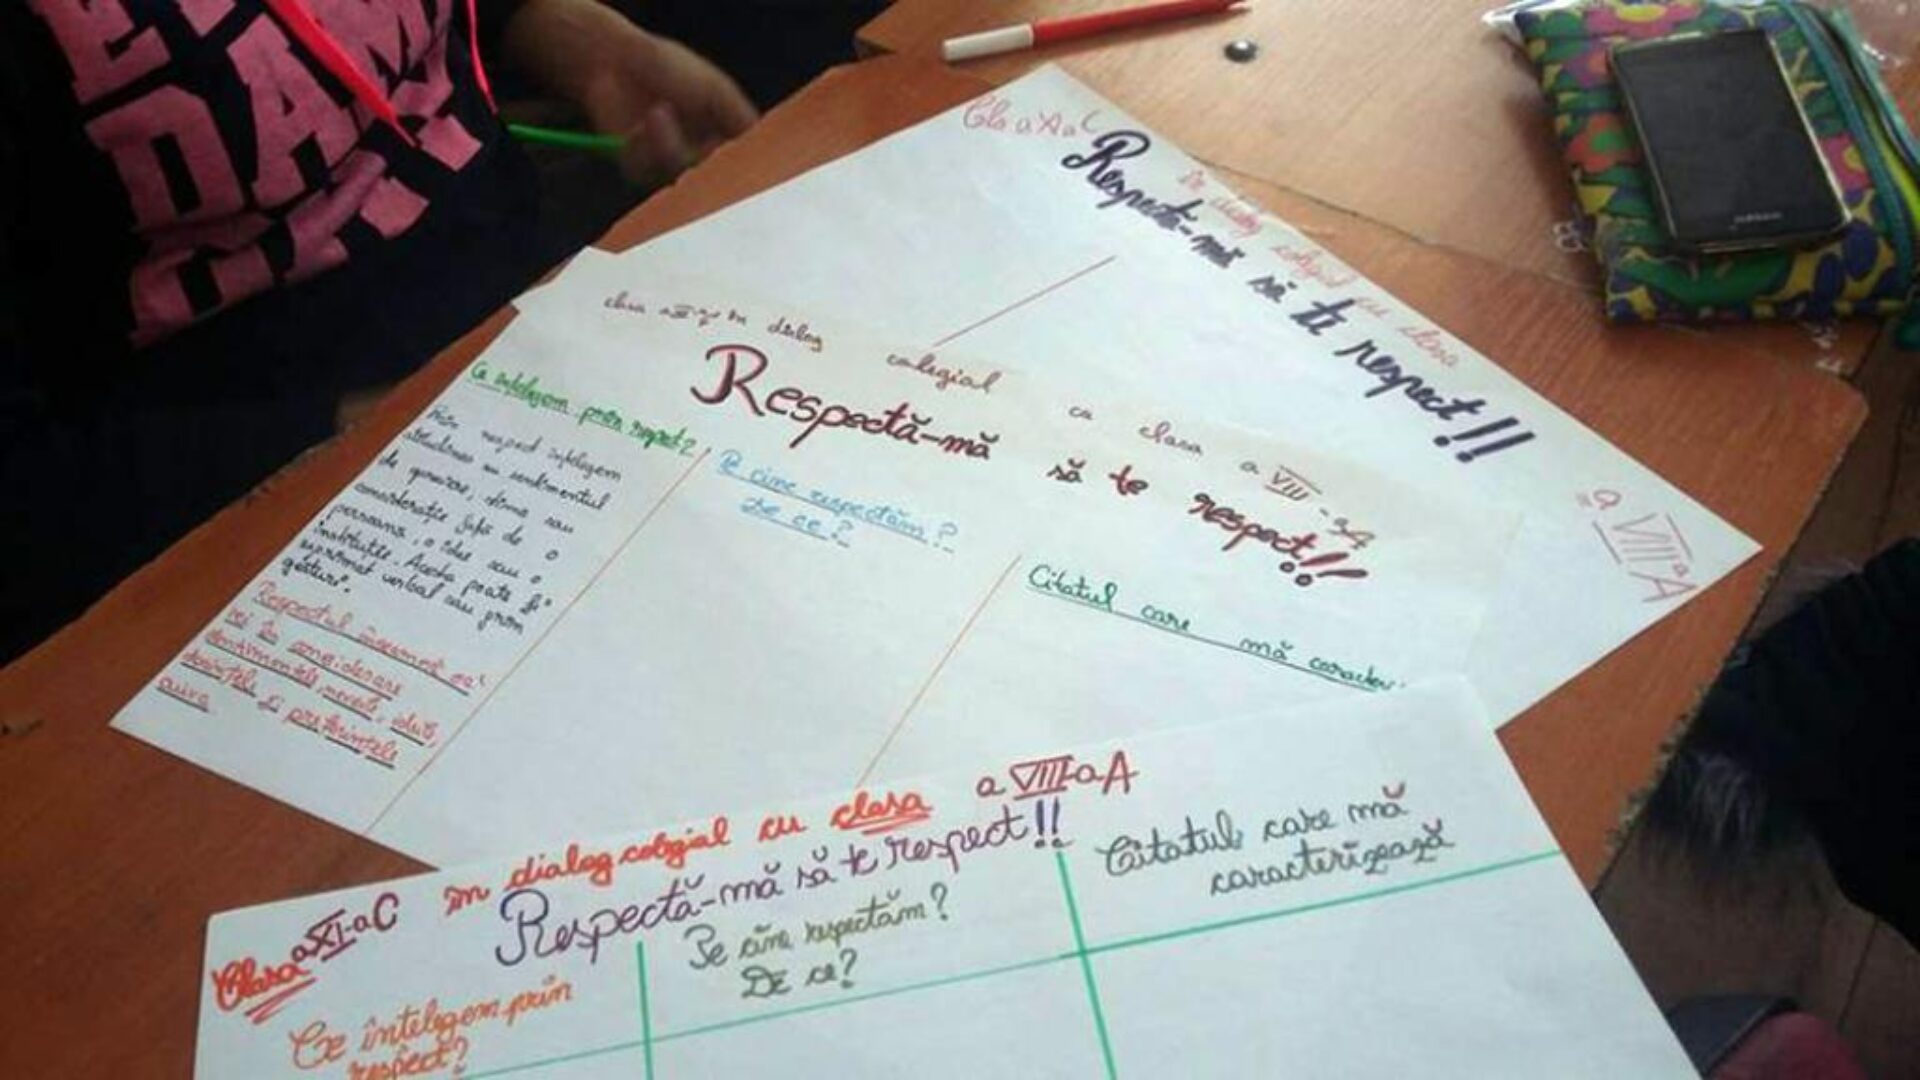 DA
a
Respectă-mă să te respect!!
a VIII a A
clasa în dialog colegial cu clasa a VIII-a A
Respectă-mă să te respect!!
Ce înțelegem prin respect?
Prin respect înțelegem
atitudinea sau sentimentul
de apreciere, stima sau
considerație față de o
persoana, o idee sau o
instituție. Acesta poate fi
exprimat verbal sau prin
gesturi.
Respectul înseamnă să
iei în considerare
sentimentele, nevoile,
dorințele și preferințele
cuiva
Pe cine respectăm?
De ce?
Citatul care mă
Clasa a XI-a C în dialog colegial cu clasa a VIII-a A
Respectă-mă să te respect!!
Ce întelegem prin
respect?
Pe cine respectăm?
De ce?
Citatul care mă
caracterizează